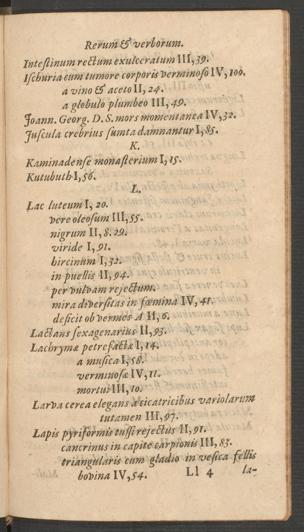 Rerum & verborum.
Intestinum rectum exulceratum III, 39.
Ischuria cum tumore corporis verminoso IV, 100.
a vino & aceto II, 24.
a globulo plumbeo III, 49.
Joann. Georg. D. S. mors momentanea IV, 32.
Juscula crebrius sumta damnantur I, 85.
K.
Kaminadense monasterium I, 15.
Kutubuth I, 56.
L.
Lac luteum I, 20.
vere oleosum III, 55.
nigrum II, 8. 29.
viride I, 91.
hircinum I, 32.
in puellis II, 94.
per vulvam rejectum.
mira diversitas in fœmina IV, 41.
deficit ob vermes A II, 6.
Lactans sexagenarius II, 93.
Lachrymæ petrefactæ I, 14.
a musica I, 58.
verminosæ IV, 11.
mortui III, 10.
Larva cerea elegans a cicatricibus variolarum
tutamen III, 97.
Lapis pyriformis tussi rejectus II, 91.
cancrinus in capite carpionis III, 83.
triangularis cum gladio in vesica fellis
bovina IV, 54.
Ll 4
la-